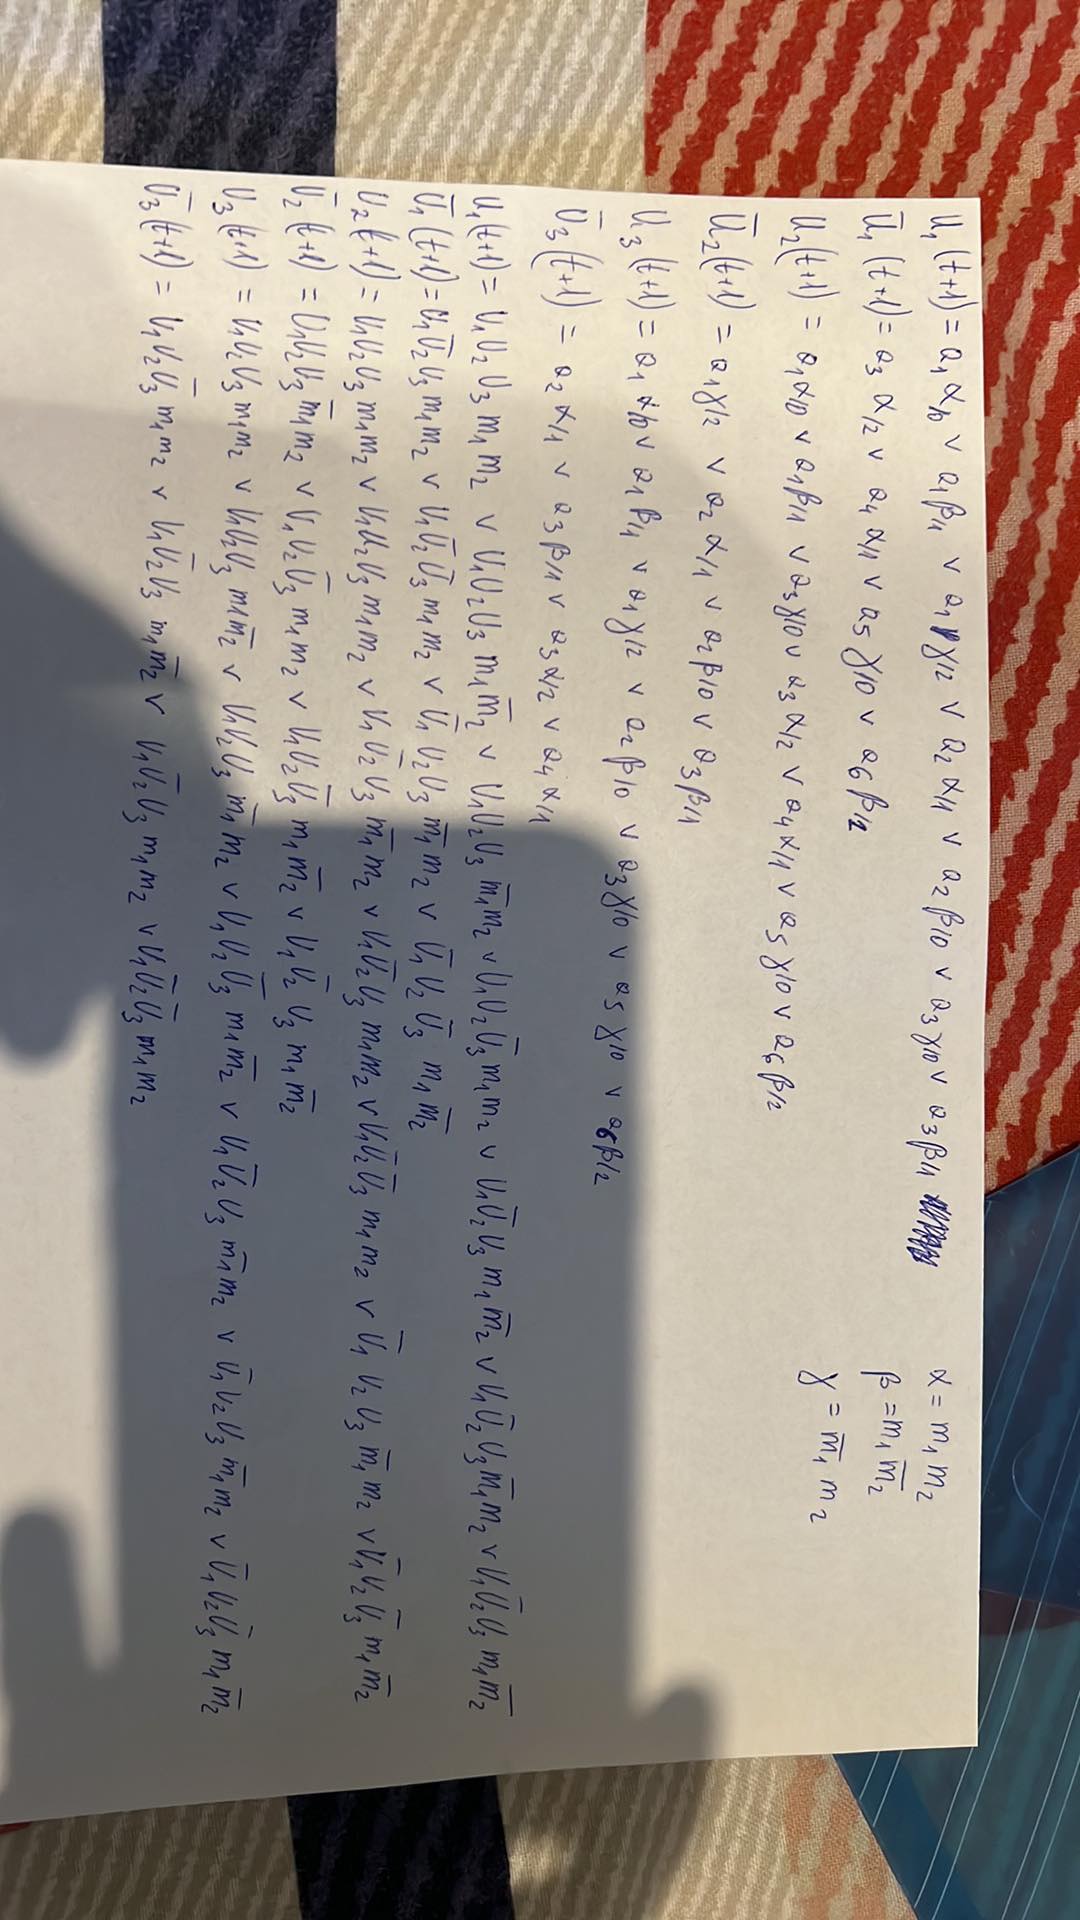 U₁(t+1) = a₁α/0 ∨ a₁β/1 ∨ a₁γ/2 ∨ a₂α/1 ∨ a₂β/0 ∨ a₃γ/0 ∨ a₃β/1
α = m₁m₂
U̅₁(t+1) = a₃α/2 ∨ a₄α/1 ∨ a₅γ/0 ∨ a₆β/2
β = m₁m̅₂
U₂(t+1) = a₁α/0 ∨ a₁β/1 ∨ a₃γ/0 ∨ a₃α/2 ∨ a₄α/1 ∨ a₅γ/0 ∨ a₆β/2
γ = m̅₁m₂
U̅₂(t+1) = a₁γ/2 ∨ a₂α/1 ∨ a₂β/0 ∨ a₃β/1
U₃(t+1) = a₁α/0 ∨ a₁β/1 ∨ a₁γ/2 ∨ a₂β/0 ∨ a₃γ/0 ∨ a₅γ/0 ∨ a₆β/2
U̅₃(t+1) = a₂α/1 ∨ a₃β/1 ∨ a₃α/2 ∨ a₄α/1
U₁(t+1) = U₁U₂U₃m₁m₂ ∨ U₁U₂U₃m₁m̅₂ ∨ U₁U₂U₃m̅₁m₂ ∨ U₁U₂U̅₃m₁m₂ ∨ U₁U̅₂U₃m₁m̅₂ ∨ U₁U̅₂U₃m̅₁m₂ ∨ U₁U̅₂U₃m₁m̅₂
U̅₁(t+1) = U₁U̅₂U₃m₁m₂ ∨ U₁U̅₂U̅₃m₁m₂ ∨ U̅₁U₂U₃m̅₁m₂ ∨ U̅₁U₂U̅₃m₁m̅₂
U₂(t+1) = U₁U₂U₃m₁m₂ ∨ U₁U₂U₃m₁m₂ ∨ U₁U̅₂U₃m̅₁m₂ ∨ U₁U̅₂U₃m₁m₂ ∨ U₁U̅₂U̅₃m₁m₂ ∨ U̅₁U₂U₃m̅₁m₂ ∨ U̅₁U₂U̅₃m₁m̅₂
U̅₂(t+1) = U₁U₂U₃m̅₁m₂ ∨ U₁U₂U̅₃m₁m₂ ∨ U₁U₂U̅₃m₁m̅₂ ∨ U₁U̅₂U₃m₁m̅₂
U₃(t+1) = U₁U₂U₃m₁m₂ ∨ U₁U₂U₃m₁m̅₂ ∨ U₁U₂U₃m̅₁m₂ ∨ U₁U₂U̅₃m₁m̅₂ ∨ U₁U̅₂U₃m̅₁m₂ ∨ U̅₁U₂U₃m̅₁m₂ ∨ U̅₁U₂U̅₃m₁m̅₂
U̅₃(t+1) = U₁U₂U̅₃m₁m₂ ∨ U₁U̅₂U₃m₁m̅₂ ∨ U₁U̅₂U₃m₁m₂ ∨ U₁U̅₂U̅₃m₁m₂